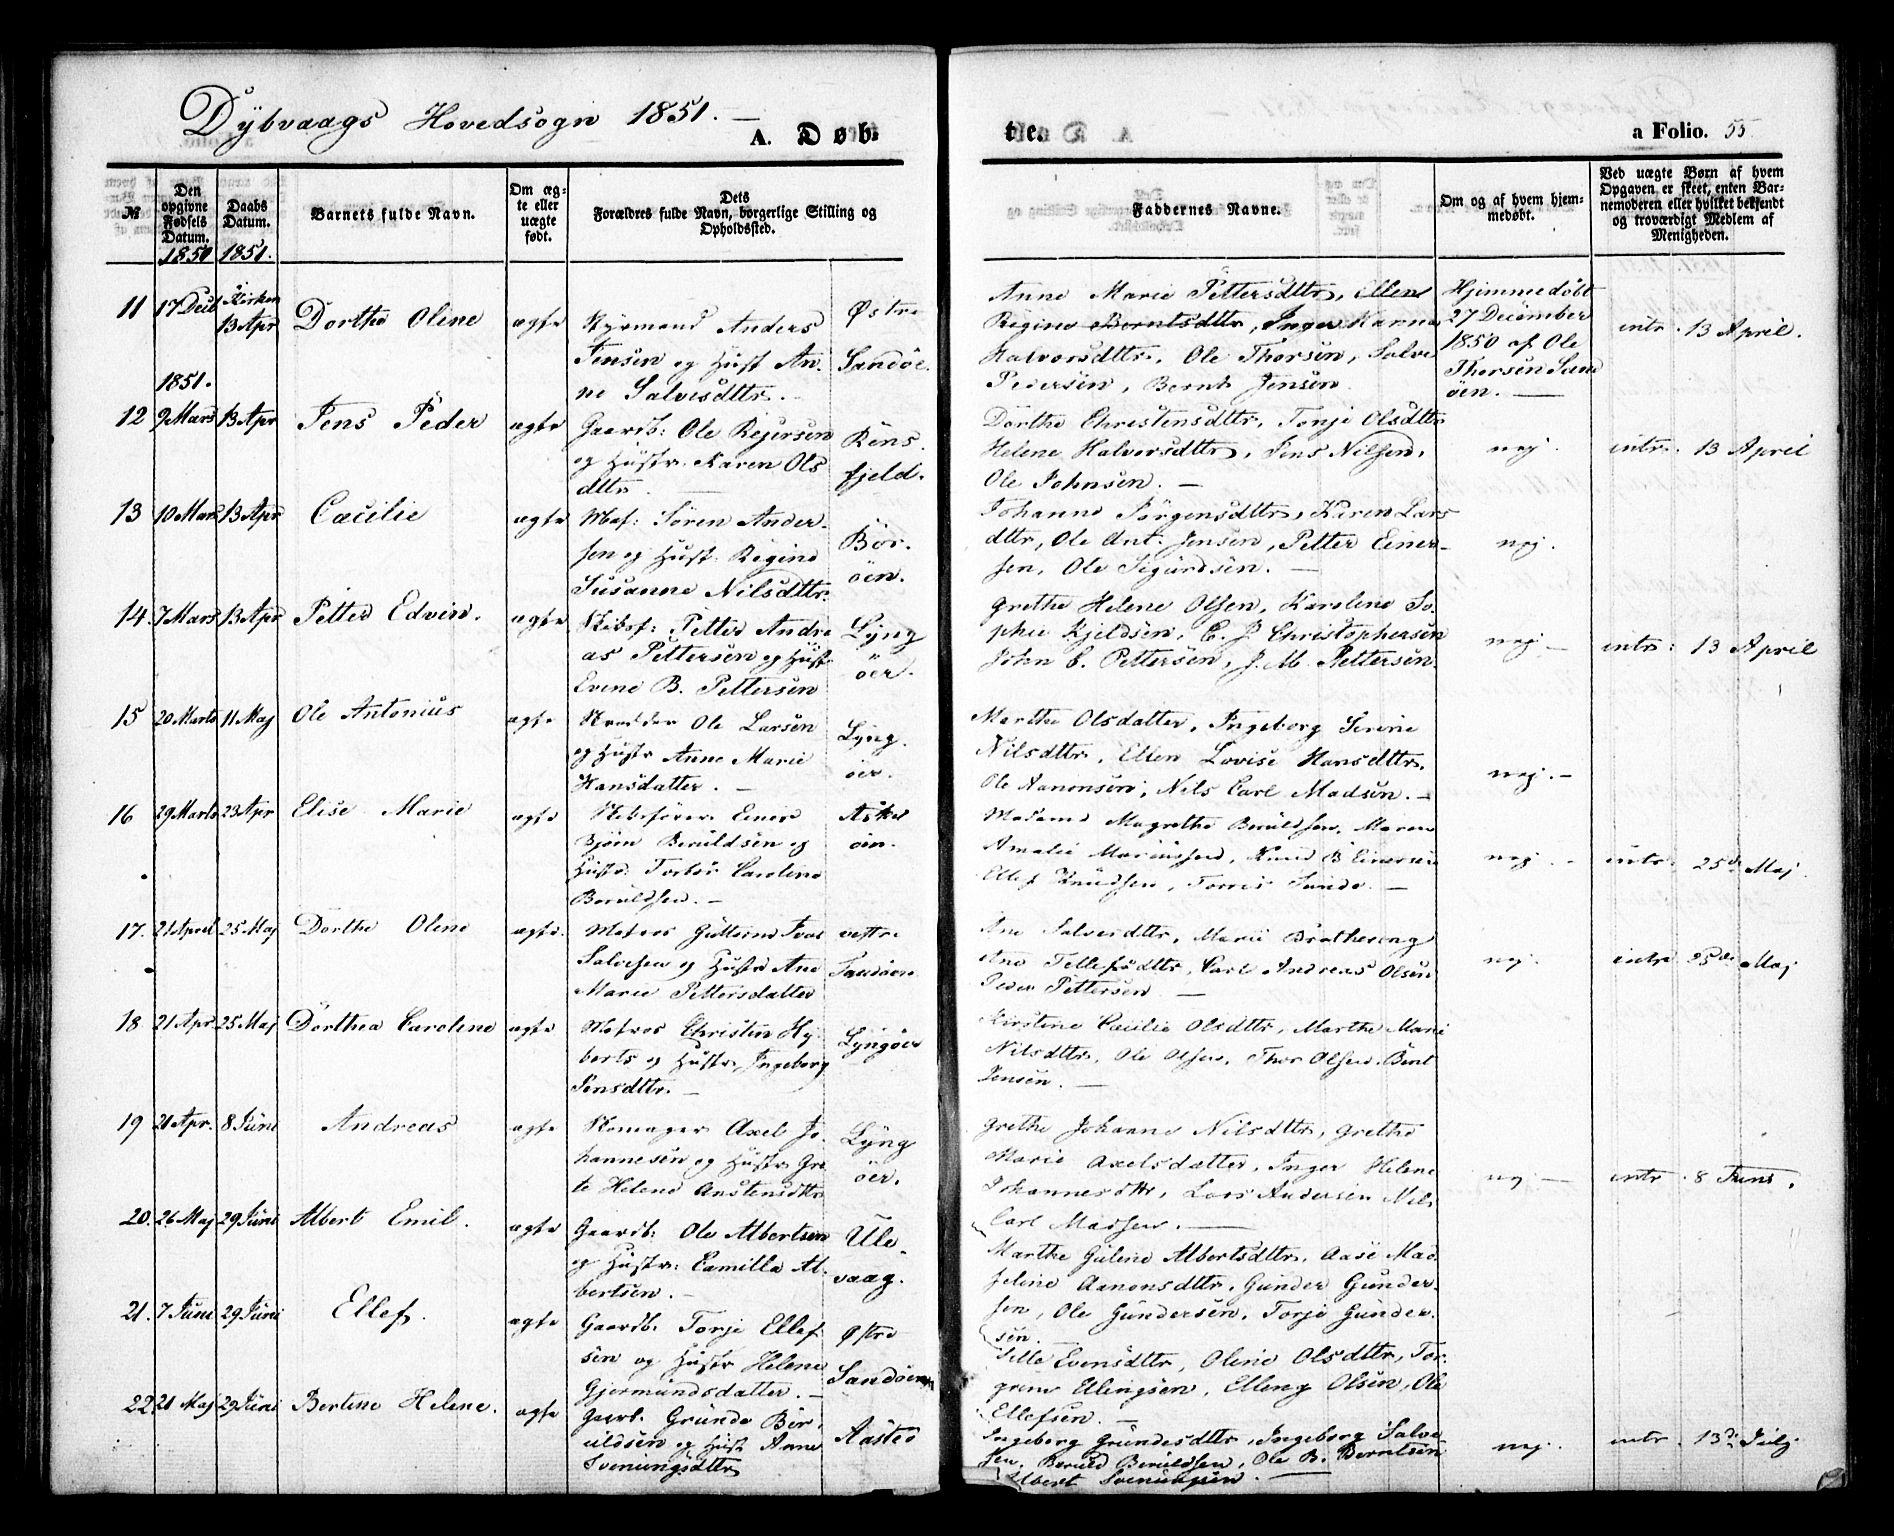 Dybvaags Hovedsogn 1851. —
A. Døb-
te.
a Folio. 55
№
Den opgivne Fødsels Datum.
1850
Daabs Datum.
1851.
Barnets fulde Navn.
Om ægte eller uægte født.
Dets
Forældres fulde Navn, borgerlige Stilling og
Opholdssted.
Faddernes Navne.
Om og af hvem hjem-
medøbt.
Ved uægte Børn af hvem
Opgaven er skeet, enten Bar-
nemoderen eller hvilket bekjendt
og troværdigt Medlem af
Menigheden.
11 17 Decb Kirken 13 Apr Dorthe Oline ægte
Styrmand Anders
Jensen og Hust An-
ne Salvesdttr. -
Østre
Sandöe.
Anne Marie Pettersdttr, Ellen
Regine Berntsdttr, Inger Karna
Halvorsdttr, Ole Thorsen, Salve
Pedersen, Bernt Jensen
Hjemmedøbt
27 December
1850 af Ole
Thorsen Sand
öen. —
intr. 13 April.
1851.
12 9 Mars 13 Apr Jens Peder ægte
Gaardb: Ole Rejersen
og Hustr. Karen Ols
dttr. —
Röns
fjeld.
Dorthe Christensdttr, Tonje Olsdttr
Helene Halvorsdttr, Jens Nilsen,
Ole Johnsen. —
nej.
intr. 13 April
13 10 Mars 13 Apr Cæcilie ægte
Mat: Sören Ander-
sen og Hust. Regine
Susanne Nilsdttr.
Bör-
öen.
Johanne Jörgensdttr, Karen Lars
dttr, Ole Ant. Jensen, Petter Einer-
sen, Ole Sigurdsen. —
nej.
14. 7 Mars 13 Apr Petter Edvin. ægte
Skibsf: Petter Andre
as Pettersen og Hust
Evene B. Pettersen
Lyng
öer.
Grethe Helene Olsen, Karoline So-
phie Kjeldsen, C. J. Christophersen
John C. Pettersen, J. M. Pettersen.
nej —
intr: 13 April
15 20 Marts 11 Maj Ole Antonius ægte
Skredder Ole Larsen
og Hustr Anne Marie
Hansdatter. —
Lyng-
öer.
Marthe Olsdatter, Ingeborg Serine
Nilsdttr, Ellen Lovise Hansdttr,
Ole Aanonsen, Nils Carl Madsen. —
nej. —
16 29 Marts 23 Apr Elise Marie ægte
Skibsfører Einer
Bjørn Beruldsen og
Hustr: Torbør Caroline
Beruldsen. —
Asker
öen.
Madame Magrethe Beruldsen, Maren
Amalie Mariussen, Knud B Einersen
Ellef Knudsen, Torris Sunde. —
nej. -
intr. 25de Maj.
17. 21 April 25 Maj Dorthe Oline ægte.
Matros Guttorm Ivar
Salvesen og Hustr Ane
Marie Pettersdatter
vestre
Sandöen
Ane Salvesdttr, Marie Brathesong
Ane Tellefsdttr, Carl Andreas Olsen
Peder Pettersen —
nej.
intr 25de Maj
18 21 Apr. 25 Maj Dorthea Caroline ægte
Matros Christen Hy-
berts og Hustr, Ingeborg
Jensdttr. —
Lyngöer
Kirstine Cæcilie Olsdttr, Marthe Marie
Nilsdttr, Ole Olsen, Thor Olsen, Bent
Jensen. —
19 21 Apr. 8 Juni Andreas ægte
Skomager Axel Jo-
hannesen og Hustr Gre
te Helene Anstensdttr
Lyng
öer.
Grethe Johanne Nilsdttr, Grethe
Marie Axelsdatter, Inger Helene
Johannesdttr, Lars Andersen Nils
Carl Madsen. —
nej —
intr. 8 Juni.
20. 26 Maj 29 Juni Albert Emil. ægte
Gaardb: Ole Albertsen
og Hustr: Camilla Al-
bertsen. —
Ule-
vaag.
Marthe Guline Albertsdttr, Aase Mad-
seline Aanonsdttr, Gunder Gunder-
sen, Ole Gundersen, Torje Gunder-
sen.
21. 7 Juni 29 Juni Ellef. ægte
Gaardb. Torje Ellef
sen og Hustr Helene
Gjermundsdatter. —
Østre
Sandöen
Sille Evensdttr, Oline Olsdttr, Tor-
grim Ellingsen, Elling Olsen, Ole
Ellefsen. —
22. 21 Maj 29 Juni Bertine Helene. ægte
Gaarb. Grunde Ber-
uldsen og Hust Anne
Svenungsdttr
Aastö
Ingeborg Grundesdttr, Ingeborg Salve-
sen, Beruld Beruldsen, Ole B. Berntsen
Albert Svenungsen. —
nej.
intr. 13de Julj